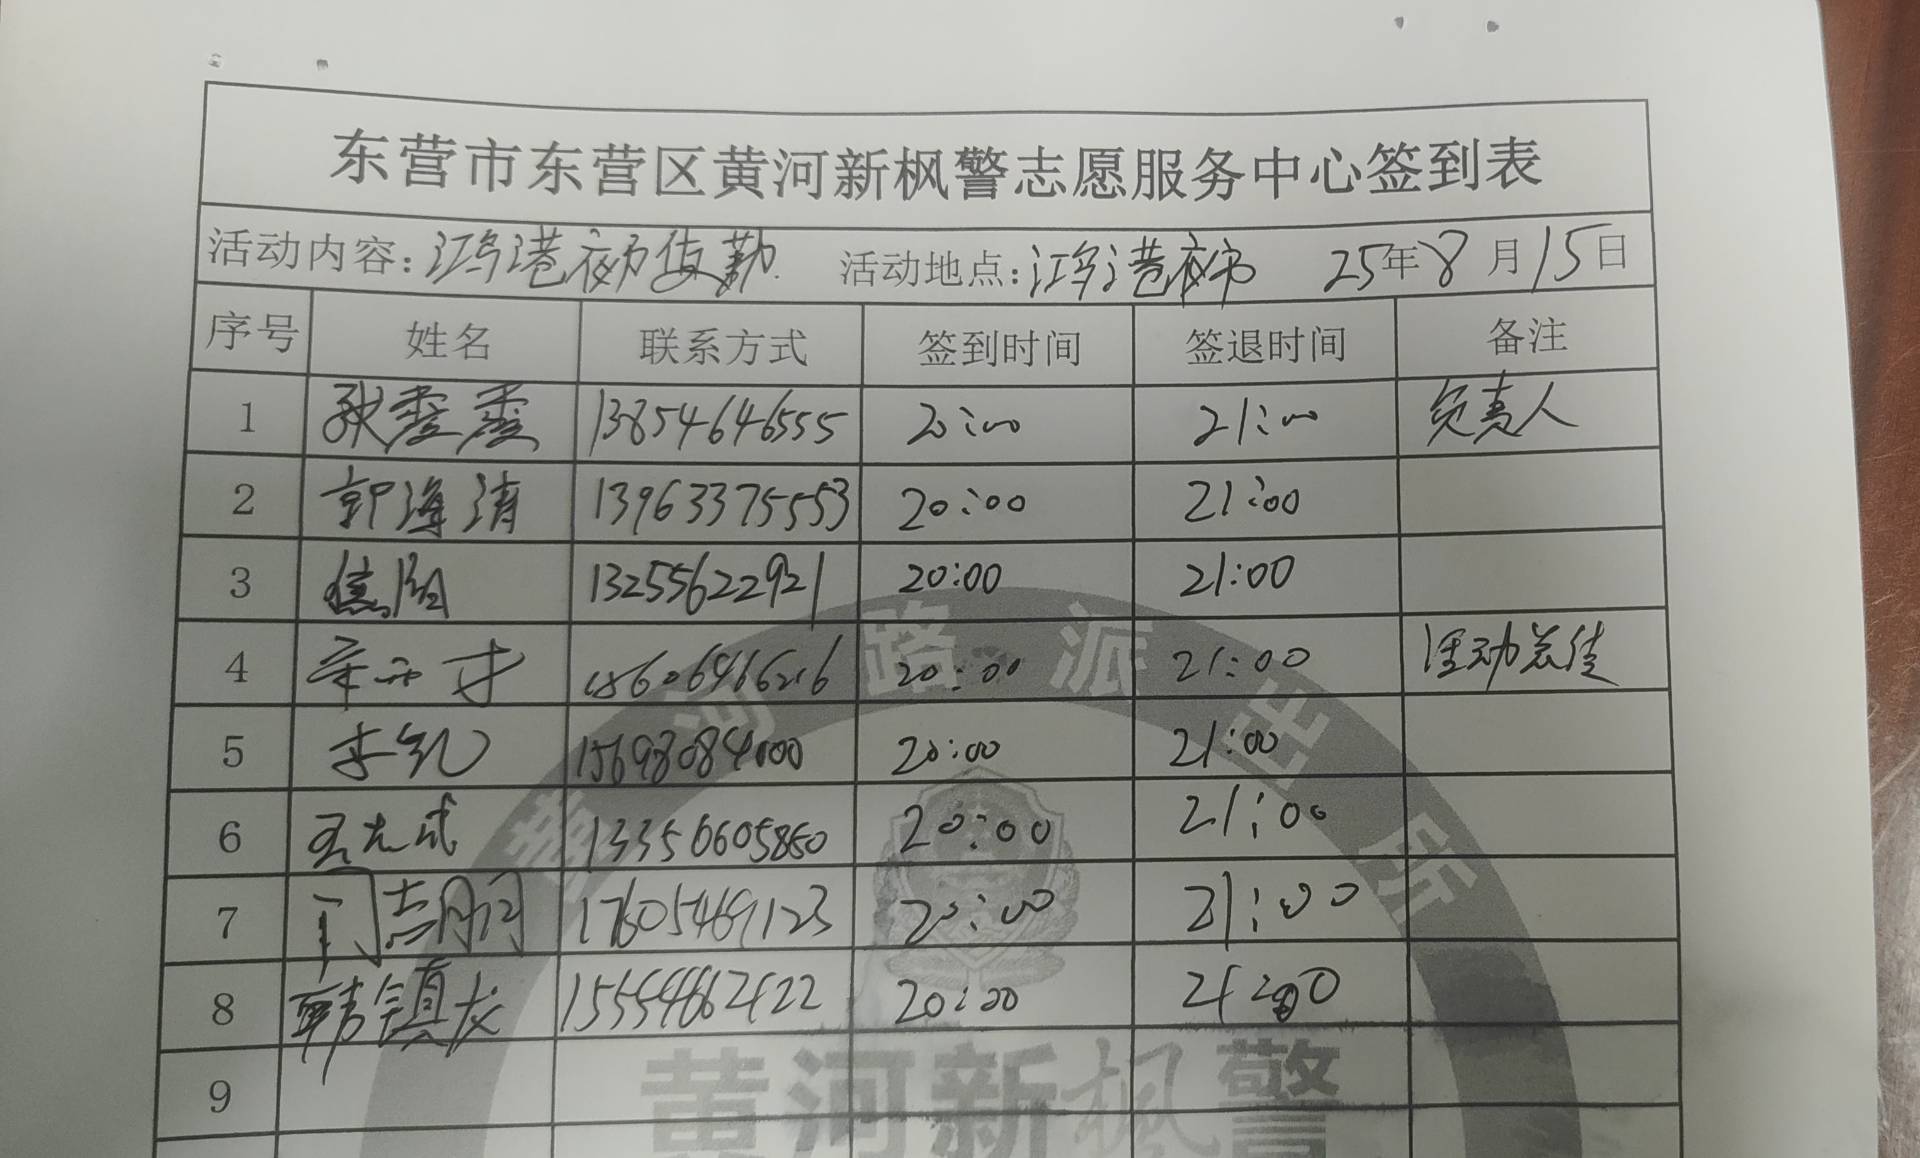 东营市东营区黄河新枫警志愿服务中心签到表
活动内容：鸿港夜市值勤 活动地点：鸿港夜市 25年8月15日
序号 姓名 联系方式 签到时间 签退时间 备注
1 13854646555 20:00 21:00 负责人
2 郭海涛 13963375553 20:00 21:00
3 13255622921 20:00 21:00
4 18606466216 20:00 21:00 活动总结
5 李凯 15698084000 20:00 21:00
6 13356605860 20:00 21:00
7 闫志刚 17605469123 20:00 21:00
8 韩镇龙 20:00 21:00
9
黄河路派出所
黄河新枫警